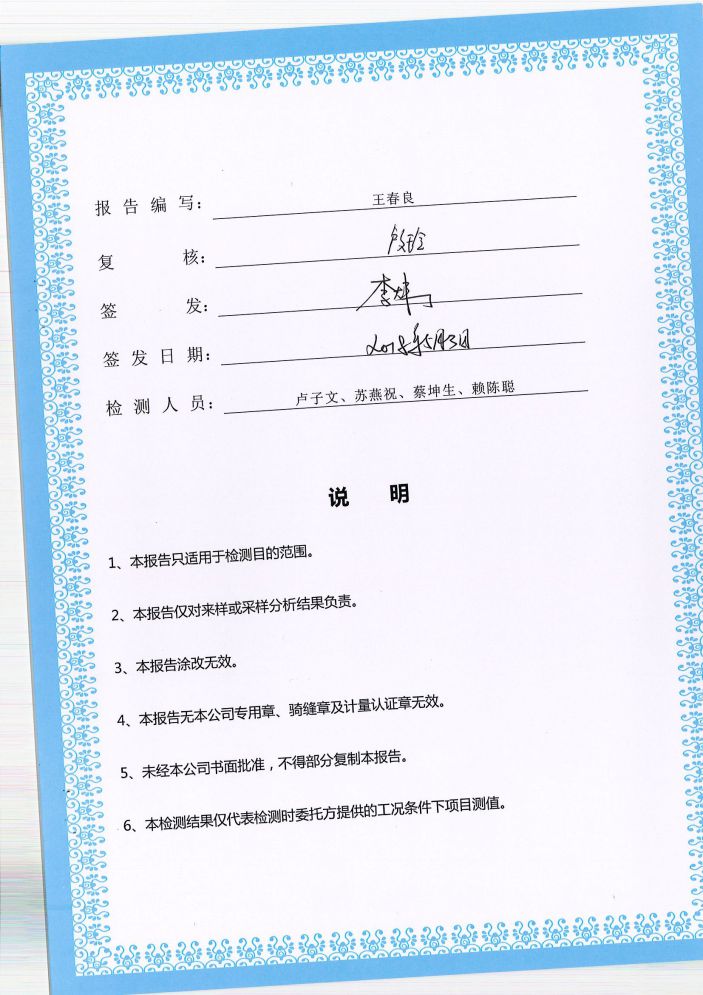 报告编写：王春良
复核：
签发：李
签发日期：2018年5月3日
检测人员：卢子文、苏燕祝、蔡坤生、赖陈聪
说 明
1、本报告只适用于检测目的范围。
2、本报告仅对来样或采样分析结果负责。
3、本报告涂改无效。
4、本报告无本公司专用章、骑缝章及计量认证章无效。
5、未经本公司书面批准，不得部分复制本报告。
6、本检测结果仅代表检测时委托方提供的工况条件下项目测值。